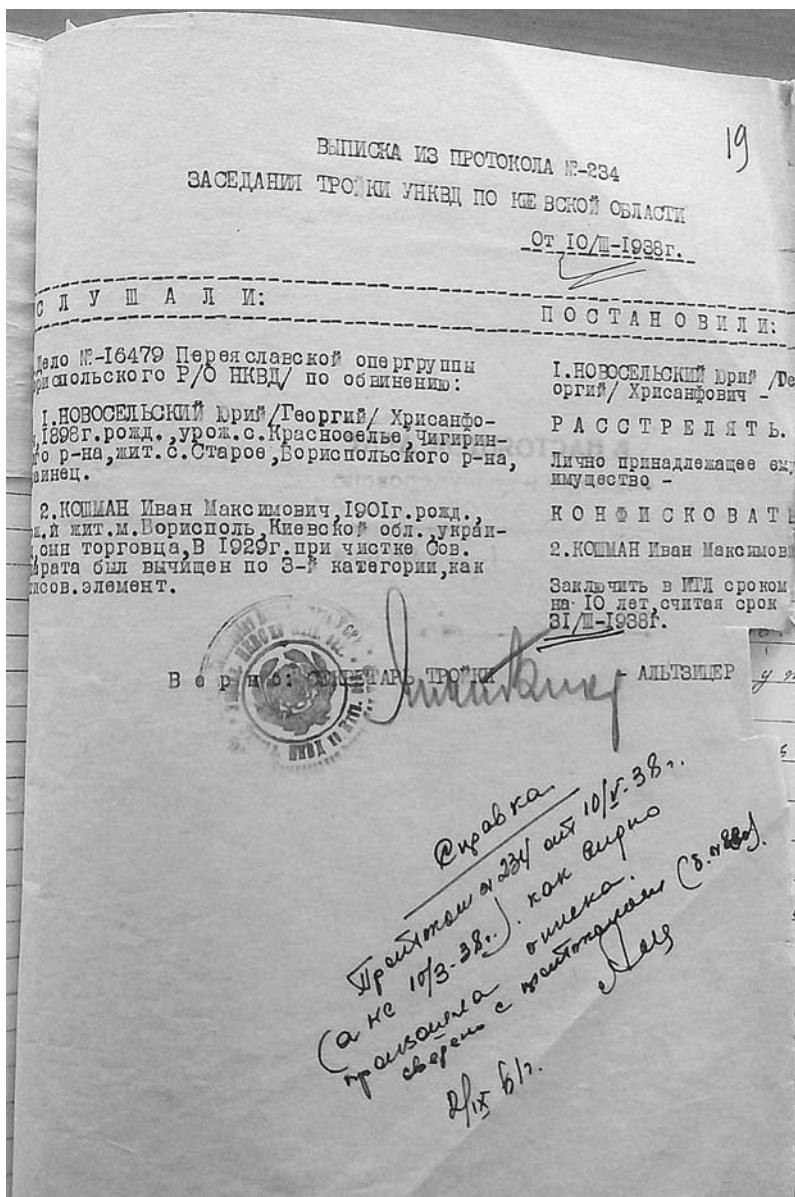 19
ВЫПИСКА ИЗ ПРОТОКОЛА №-234
ЗАСЕДАНИЯ ТРОЙКИ УНКВД ПО КИЕВСКОЙ ОБЛАСТИ
От 10/III-1938г.
СЛУШАЛИ:
ело №-16479 Переяславской опергруппы
риспольского Р/О НКВД/ по обвинению:
I.НОВОСЕЛЬСКИЙ Юрий/Георгий/ Хрисанфо-
,1898г.рожд.,урож.с.Красноселье,Чигирин-
го р-на,жит.с.Старое,Бориспольского р-на,
аинец.
2.КОШМАН Иван Максимович,1901г.рожд.,
ж.и жит.м.Борисполь,Киевской обл.,украи-
,сын торговца,В 1929г.при чистке Сов.
арата был вычищен по 3-й категории,как
сов.элемент.
ПОСТАНОВИЛИ:
I.НОВОСЕЛЬСКИЙ Юрий /Ге
оргий/ Хрисанфович -
РАССТРЕЛЯТЬ.
Лично принадлежащее ему
имущество -
КОНФИСКОВАТЬ
2.КОШМАН Иван Максимов
Заключить в ИТЛ сроком
на 10 лет,считая срок
31/III-1938г.
Верно: СЕКРЕТАРЬ ТРОЙКИ - АЛЬТЗИЦЕР
Справка.
Протокол № 234 от 10/V-38г.
(а не 10/3-38г.). как видно
произошла описка.
сверено с протоколом
2/IX 61г.